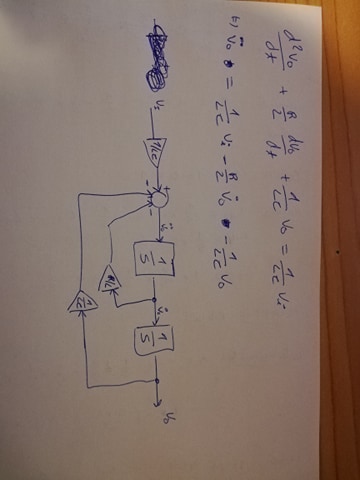 d²v₀/dt + R/2 dv₀/dt + 1/LC v₀ = 1/LC vᵢ
v̈₀ = 1/LC vᵢ - R/2 v̇₀ - 1/LC v₀
vᵢ 1/LC + - - v̈₀ 1/S v̇₀ 1/S v₀
R/L
1/LC